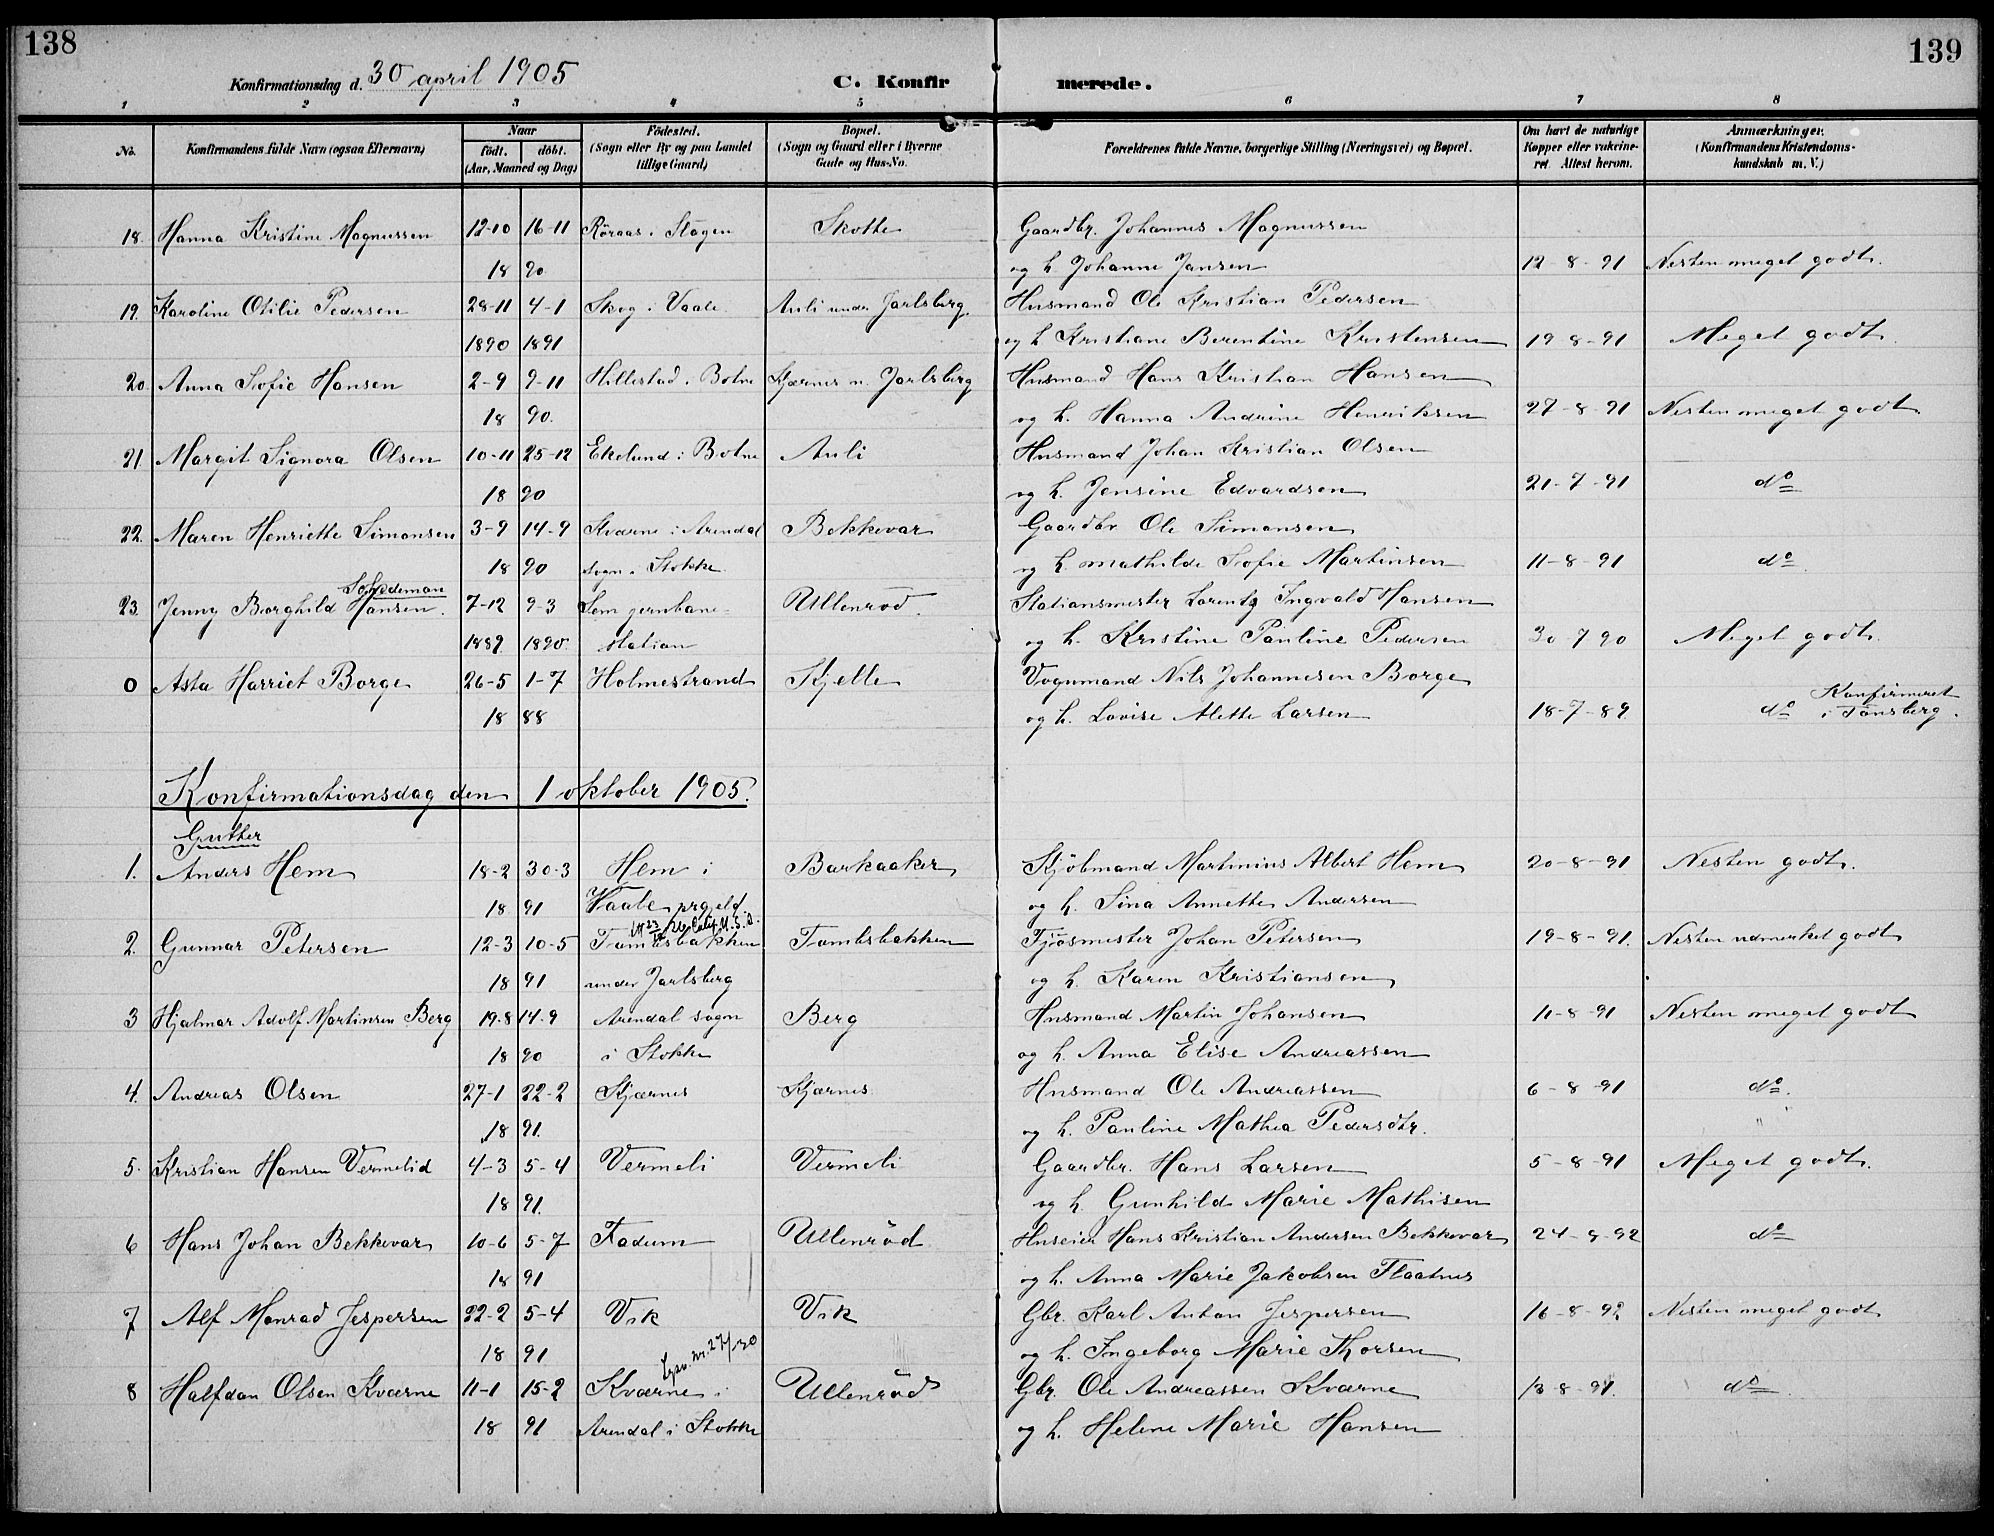 138
139
Konfirmationsdag d. 30 april 1905
C. Konfir merede.
1 2 3 4 5 6 7 8
No. Konfirmandens fulde Navn (ogsaa Efternavn) Naar födt. döbt. (Aar, Maaned og Dag) Födested. (Sogn eller By og paa Landet tillige Gaard) Bopæl. (Sogn og Gaard eller i Byerne Gade og Hus-No. Forældrenes fulde Navne, borgerlige Stilling (Næringsvei) og Bopæl. Om havt de naturlige Kopper eller vakcineret. Attest herom. Anmærkninger. (Konfirmandens Kristendomskundskab m. V.)
18. Hanna Kristine Magnussen 12-10 16-11 Röraas i Slagen Skotte Gaardbr. Johannes Magnussen
18 90 og h. Johanne Jansen 12-8-91 Nesten meget godt.
19. Karoline Otilie Pedersen 28-11 4-1 Skog i Vaale Auli under Jarlsberg Husmand Ole Kristian Pedersen
1890 1891 og h Kristiane Berentine Kristensen 19-8-91 Meget godt.
20. Anna Sofie Hansen 2-9 9-11 Hillestad i Botne Kjærnes u. Jarlsberg Husmand Hans Kristian Hansen
18 90. og h. Hanna Andrine Henriksen 27-8-91 Nesten meget godt
21. Margit Signora Olsen 10-11 25-12 Ekelund i Botne Auli Husmand Johan Kristian Olsen
18 90 og h. Jensine Edvardsen 21-7-91 do
22. Maren Henriette Simonsen 3-9 14-9 Kværne i Arendal Bekkevar Gaardbr Ole Simonsen
18 90 sogn i Stokke og h. Mathilde Sofie Martinsen 11-8-91 do
23. Jenny Borghild Hansen. 7-12 9-3 Sem jernbane- Ullenröd. Stationsmester Lorentz Ingvald Hansen
1889 1890 station og h. Kristine Pauline Pedersen 30-7 90 Meget godt.
0 Asta Harriet Borge 26-5 1-7 Holmestrand Kjelle Vognmand Nils Johannesen Borge
18 88 og h. Lovise Alette Larsen 18-7-89 do Konfirmeret i Tönsberg.
Konfirmationsdag den 1 oktober 1905.
Guther
1. Anders Hem 18-2 30-3 Hem i Barkaaker Kjöbmand Martinius Albert Hem 20-8-91 Nesten godt.
18 91 Vaale prgjeld. og h. Sina Annette Andersen
2. Gunnar Petersen 12-3 10-5 Tombsbakken Tombsbakken Fjösmester Johan Petersen 19-8-91. Nesten udmerket godt
18 91 under Jarlsberg og h. Karen Kristiansen
3 Hjalmar Adolf Martinsen Berg 19-8 14-9 Arendal sogn Berg Husmand Martin Johansen 11-8-91 Nesten meget godt
18 90 i Stokke og h. Anna Elise Andreassen
4. Andreas Olsen 27-1 22-2 Kjærnes Kjærnes Husmand Ole Andreassen 6-8-91 do.
18 91. og h. Pauline Mathea Pedersdtr.
5. Kristian Hansen Vermelid 4-3 5-4 Vermeli Vermeli Gaardbr. Hans Larsen 5-8-91 Meget godt.
18 91. og h. Gunhild Marie Mathisen
6 Hans Johan Bekkevar 10-6 5-7 Fadum Ullenröd Huseier Hans Kristian Andersen Bekkevar 24-8-92 do
18 91 og h. Anna Marie Jakobsen Flaatnes
7 Alf Monrad Jespersen 22-2 5-4 Vik Vik Gbr. Karl Anton Jespersen 16-8-92 Nesten meget godt
18 91 og h. Ingeborg Marie Thorsen
8 Halfdan Olsen Kværne 11-1 15-2 Kværne i Ullenröd Gbr. Ole Andreassen Kværne 13-8-91. do
18 91 Arendal i Stokke og h. Helene Marie Hansen